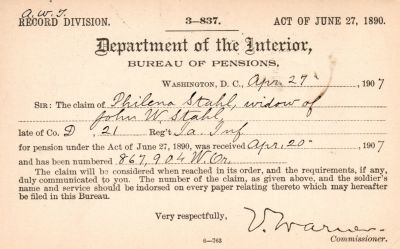 A.W.F.
RECORD DIVISION. 3—837. ACT OF JUNE 27, 1890.
Department of the Interior,
BUREAU OF PENSIONS,
WASHINGTON, D. C., Apr. 27, 1907
SIR: The claim of Philena Stahl, widow of
John W. Stahl,
late of Co. D, 21 Reg't Ia. Inf
for pension under the Act of June 27, 1890, was received Apr. 20 1907
and has been numbered 867,904 W. Or.
The claim will be considered when reached in its order, and the requirements, if any,
duly communicated to you. The number of the claim, as given above, and the soldier's
name and service should be indorsed on every paper relating thereto which may hereafter
be filed in this Bureau.
Very respectfully,
V. Warner
Commissioner.
6—763